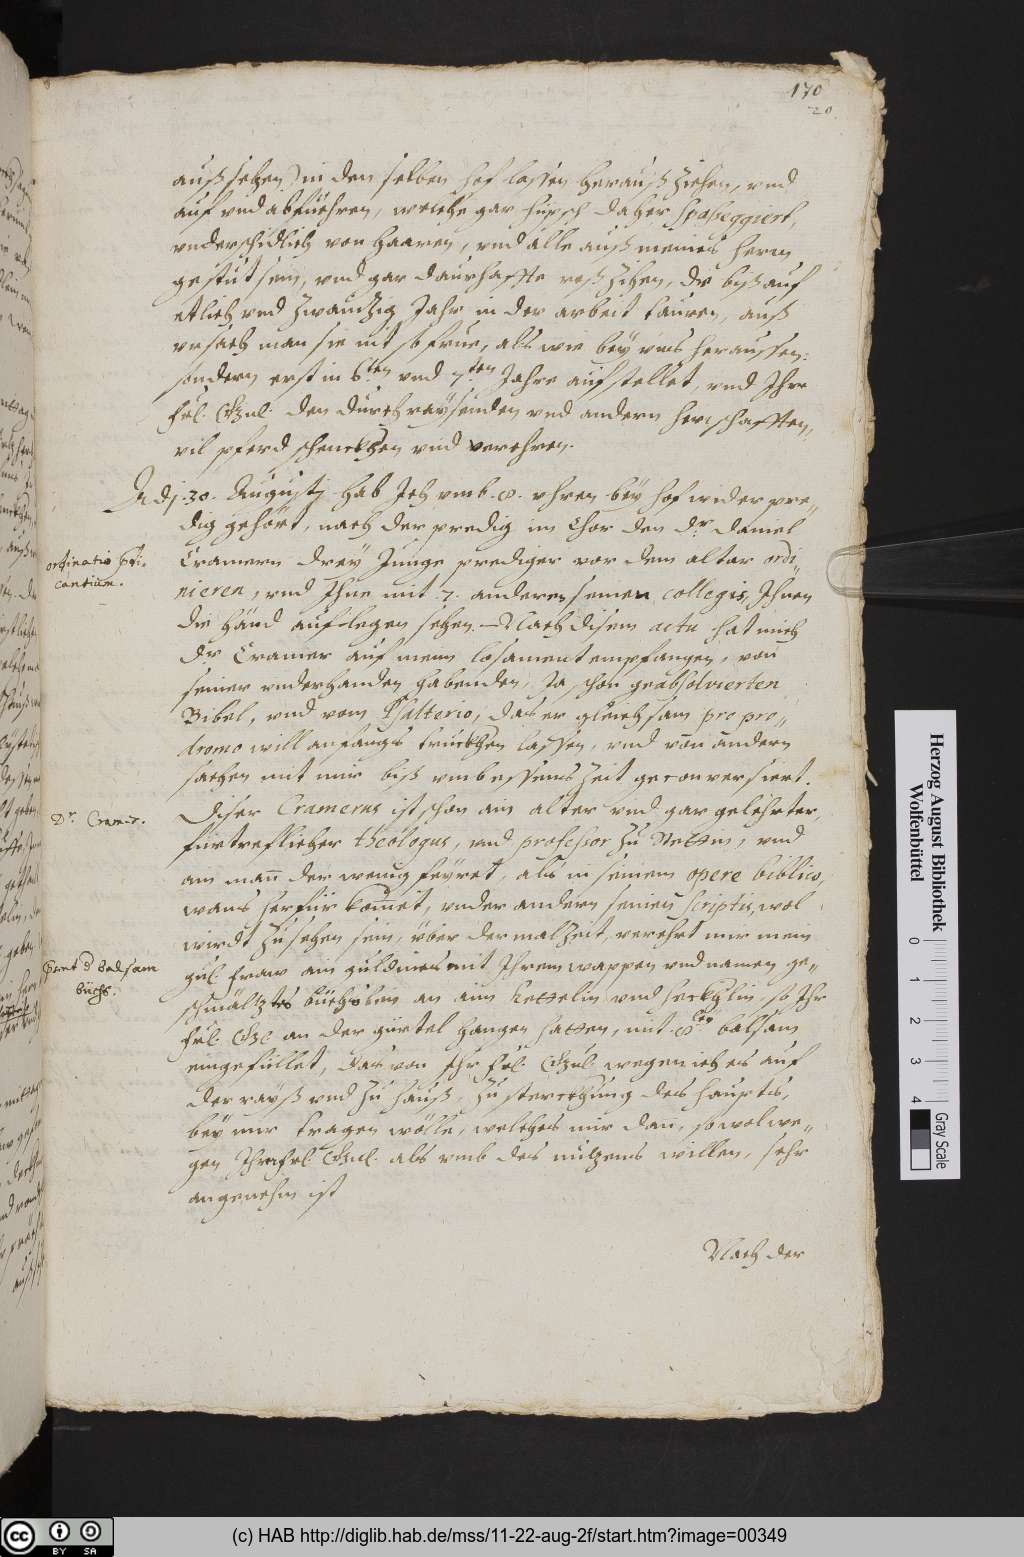 170
20.
außsehen) in den selben hof lassen herauß ziehen, vnd
auf vnd abfüehren, welche gar hüpsch daher spaßeggiert,
vnderschidlich von haaren, vnd alle auß meines herrn
gestüt sein, vnd gar daurhaffte roß ziehen, die biß auf
etlich vnd zwainzig Jahr in der arbeit tauren, auß
vrsach man sie nit so frue, als wie bey vns heraussen:
sondern erst in 6ten vnd 7ten Jahre aufstellet, vnd Ihre
frl. Gnl. den durchraysenden vnd andern herrschafften,
vil pferd schenckhen vnd verehren.
Adj. 30. Augustj hab Ich vmb .8. vhren bey hof wider pre„
dig gehört, nach der predig im Chor den dr. Daniel
Cramern drey Junge prediger vor dem altar ordi„
nieren, vnd Ihne mit .7. anderen seinen collegis, Ihnen
die händ auflegen sehen. Nach disem actu hat mich
Dr. Cramer auf mein losament empfangen, von
seiner vnderhanden habenden, Ja schon geabsolvierten
Bibel, vnd vom Psalterio, das er gleichsam pro pro„
dromo will anfangs truckhen lassen, vnd von andern
sachen mit mir biß vmb essens Zeit geconversiert.
Diser Cramerus ist schon ain alter vnd gar gelehrter,
fürtreflicher theologus, vnd professor zu Stettin, vnd
ain man der wenig feyret, als in seinem opere biblico,
wans herfür komet, vnder andern seinen scriptis, wol
wirdt zusehen sein, über der malzeit, verehrt mir mein
gnl. fraw ain guldines mit Ihrem wappen vnd namen ge„
schmältztes büchslein an aim kettelin vnd heckhlin, so Ihr
frl. Gnl. an der gürtel hangen hatten, mit balsam
eingefüllet, das von Ihr frl. Gnl. wegen ich es auf
der rayß vnd zu hauß, zu sterckhung des haupts,
bey mir tragen wölle, welches mir dan, sowol we„
gen Ihr frl. Gnl. als vmb des nutzens willen, sehr
angenehm ist
Nach der
ordinatio
cantium.
Dr. Cramer.
balsam
büchs.
Herzog August Bibliothek
Wolfenbüttel
0 1 2 3 4
Gray Scale
cc BY SA
(c) HAB http://diglib.hab.de/mss/11-22-aug-2f/start.htm?image=00349